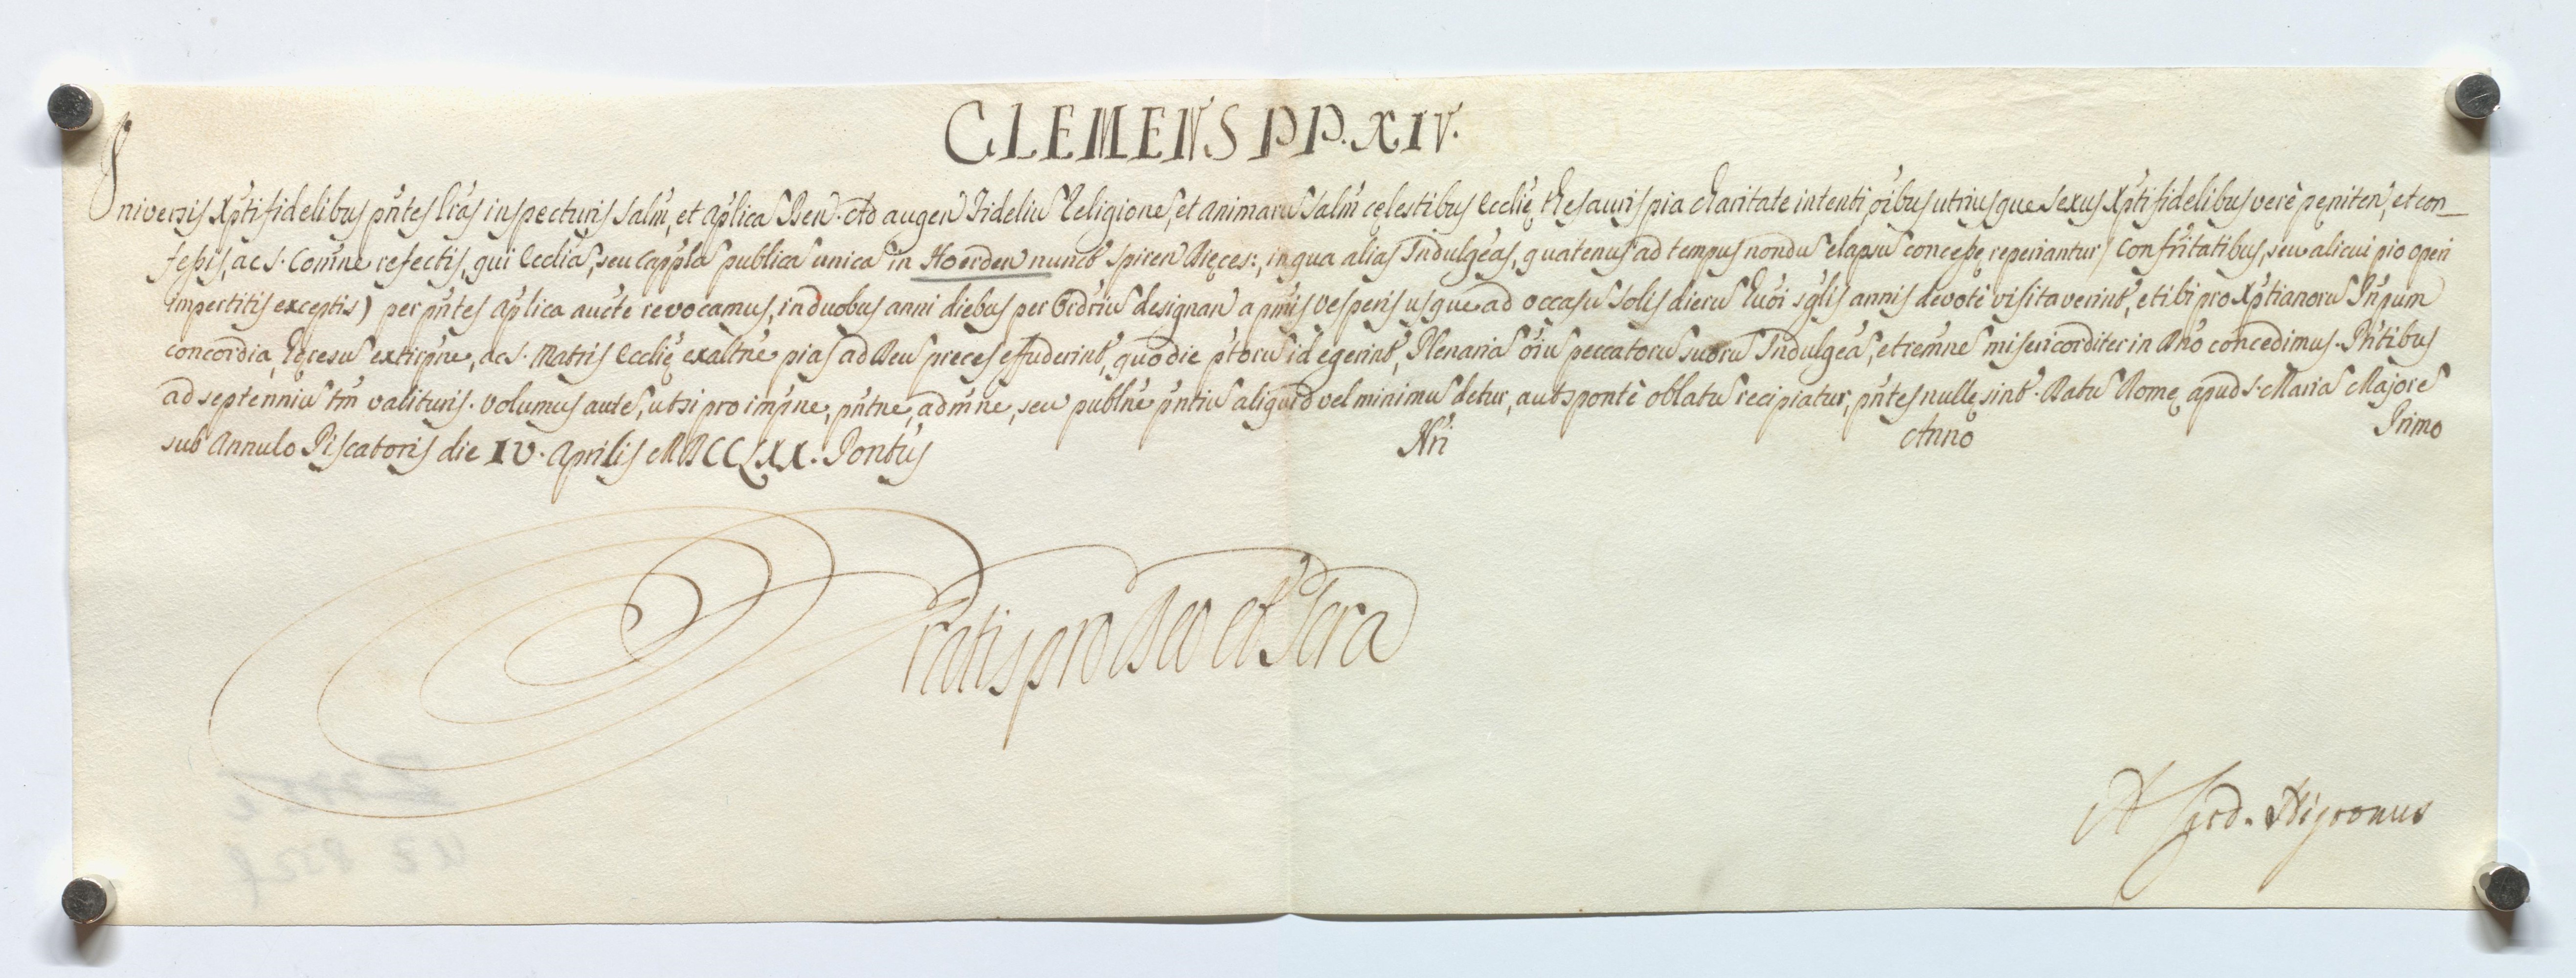 CLEMENS PP. XIV.
Universis Xpti fidelibus pñtes lras inspecturis Salm, et Aplica Ben. Ad augen Fideliu Religione, et animaru Salm cęlestibus Ecclię thesauris pia charitate intenti oibus utriusque Sexus Xpti fidelibus verè pęniten, et con_
fessis, ac S. Comne refectis, qui Ecclia, seu Cappla publica unica in Hoerden nuncb Spiren Dięces:, in qua alias Indulgeas, quatenus ad tempus nondu elapsu concessę reperiantur (confritatibus, seu alicui pio operi
impertitis exceptis) per pñtes aplica aucte revocamus, in duobus anni diebus per Ordriu designan a pmis vesperis usque ad occasu Solis dieru huoi sglis annis devotè visitaverint, et ibi pro Xptianoru Pñpum
concordia, hęresu extirpne, ac S. Matris Ecclię exaltne pias ad Deu preces effuderint, quo die ptoru id egerint, Plenaria oiu peccatoru suoru Indulgea, et remne misericorditer in Dño concedimus. Pñtibus
ad septenniu tm valituris. Volumus aute, ut si pro impne, pñtne, admne, seu publne pñtiu aliquid vel minimu detur, aut sponte oblatu recipiatur, pñtes nullę sint. Datu Romę apud S. Maria Majore
sub Annulo Piscatoris die IV. Aprilis MDCCLXX. Pontus Nri Anno Primo
Gratis pro Deo et Scra